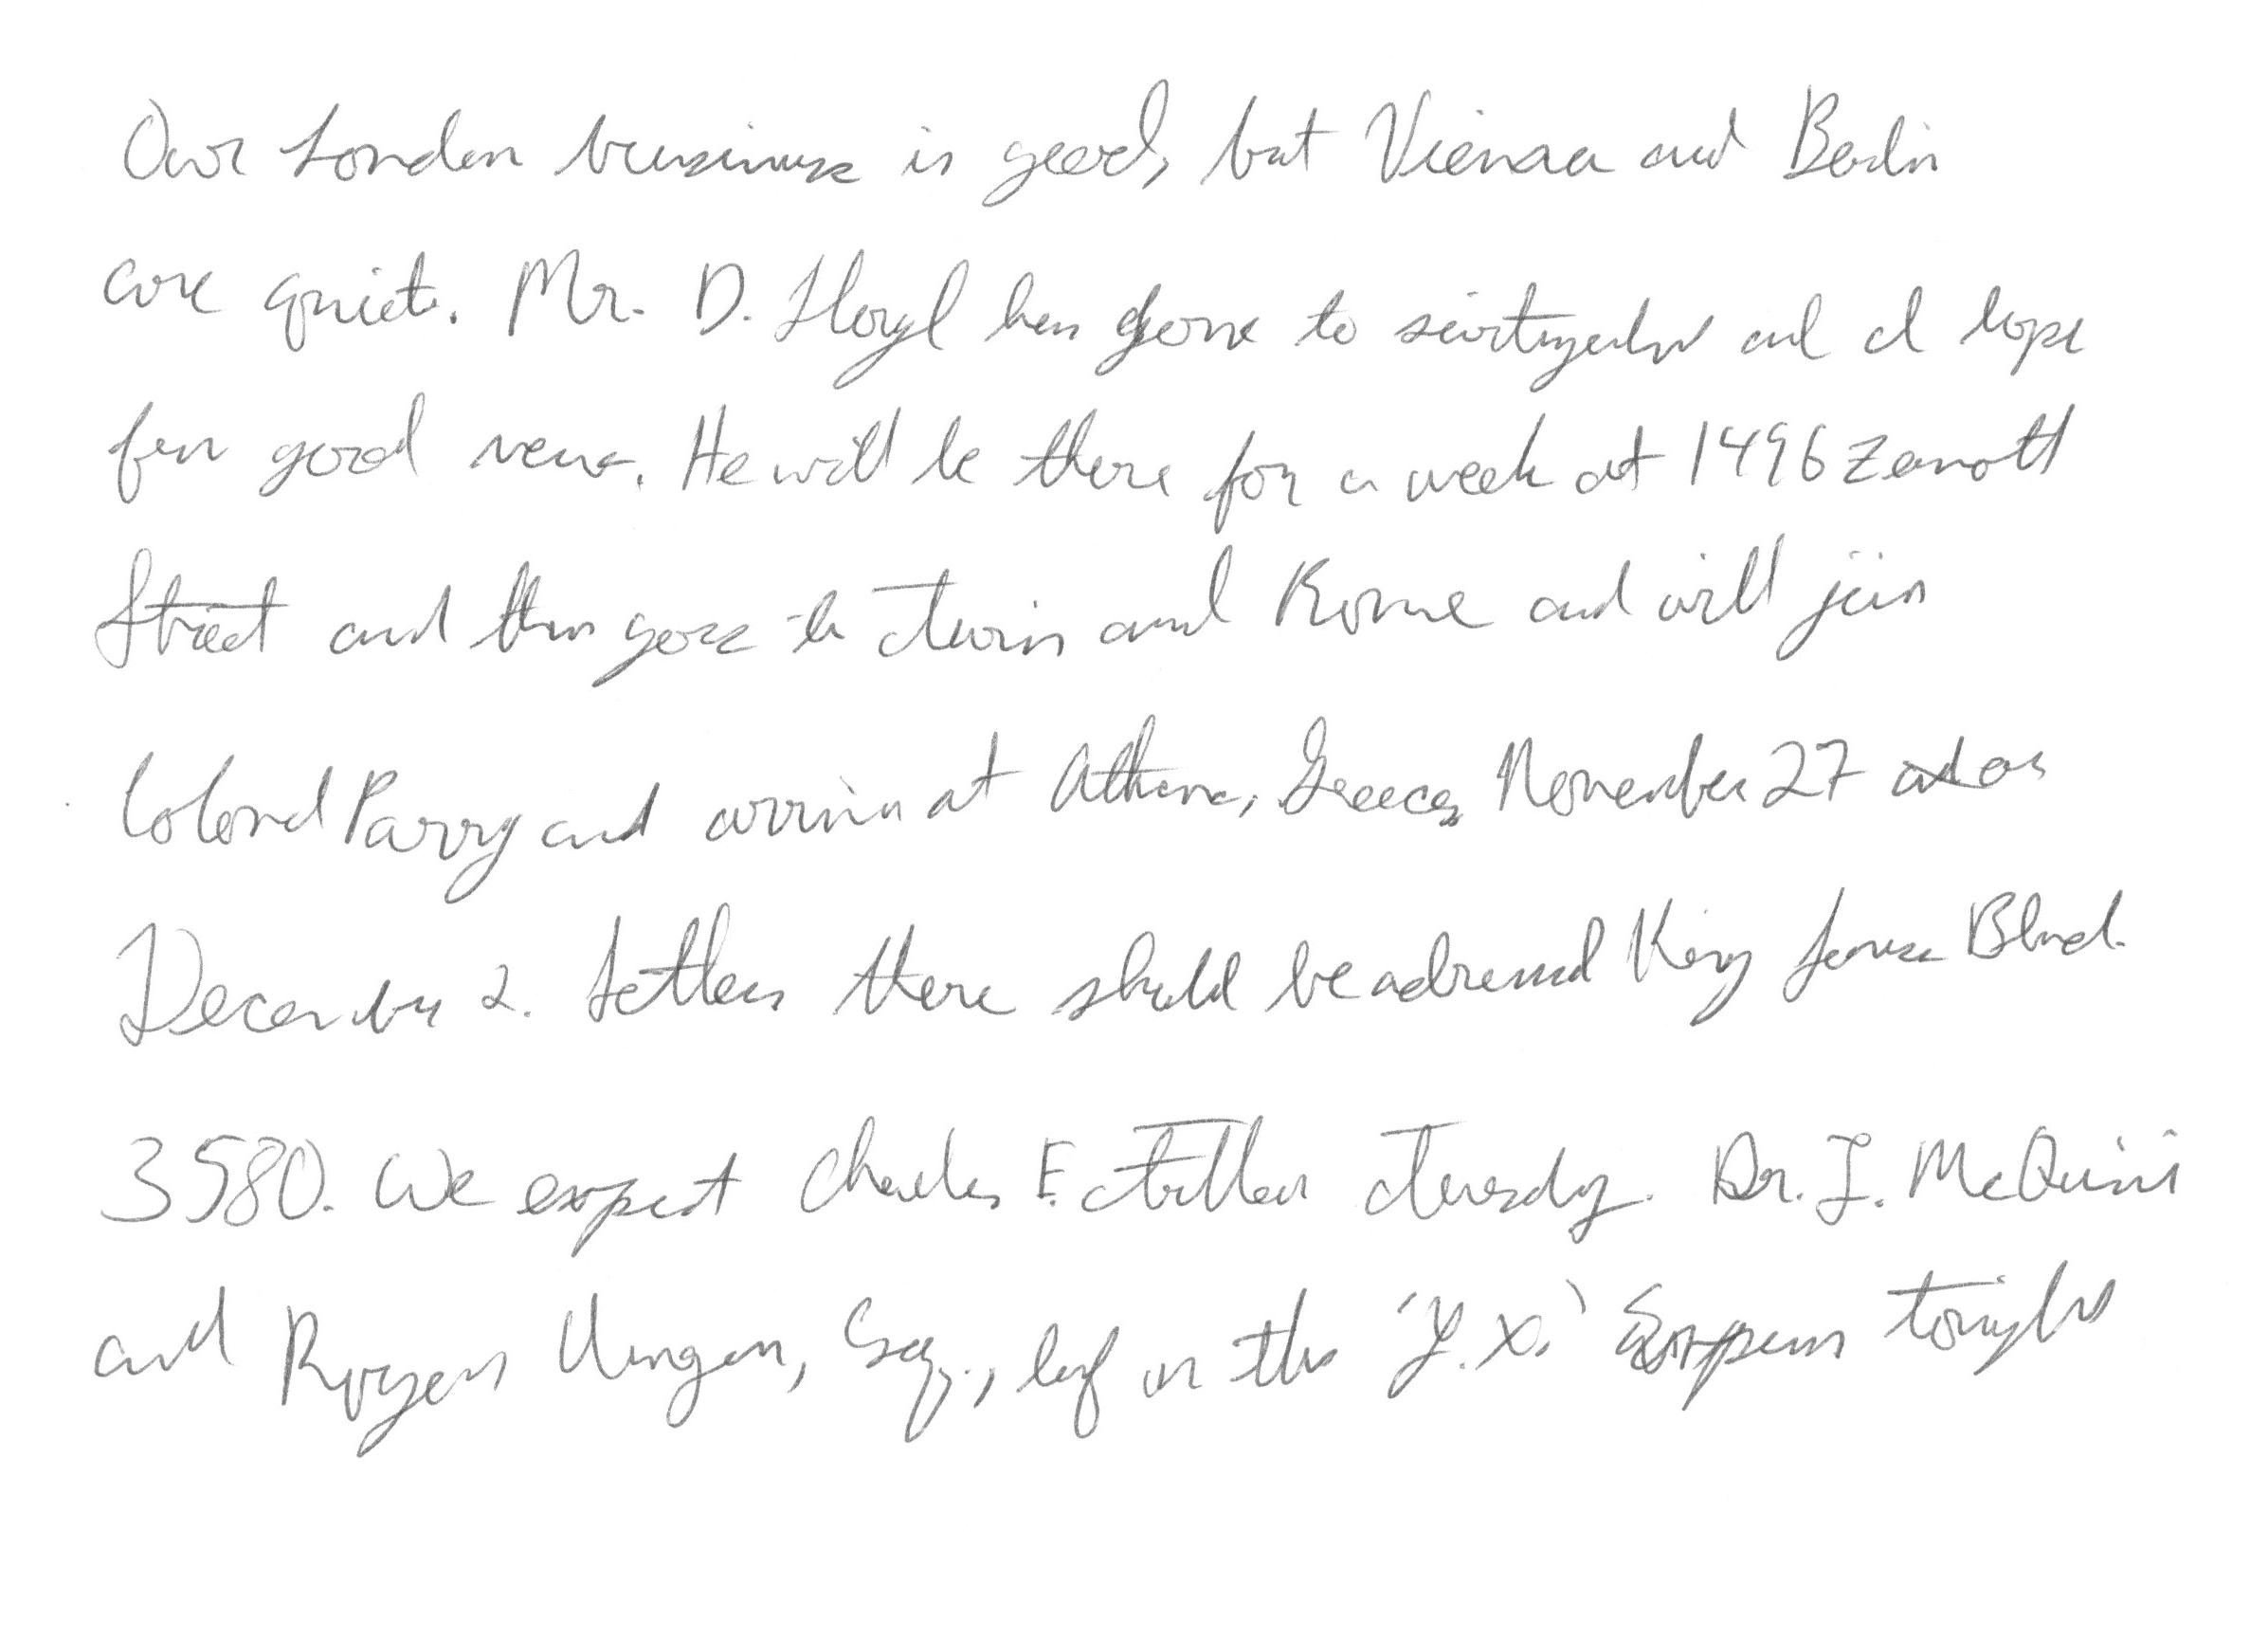 Our London business is good, but Vienna and Berlin
are quiet. Mr. D. Lloyd has gone to and I hope
for good news. He will be there for a week at 1496 Zermott
Street and then goes to Turin and Rome and will join
Colonel Parry and arrive at Athens, Greece, November 27 or
December 2. Letters there should be adressed King James Blvd.
3580. We expect Charles E. Fuller Tuesday. Dr. L. McQuin
and Roger Unger, Esq., left on the 'Y.X.' Express tonight